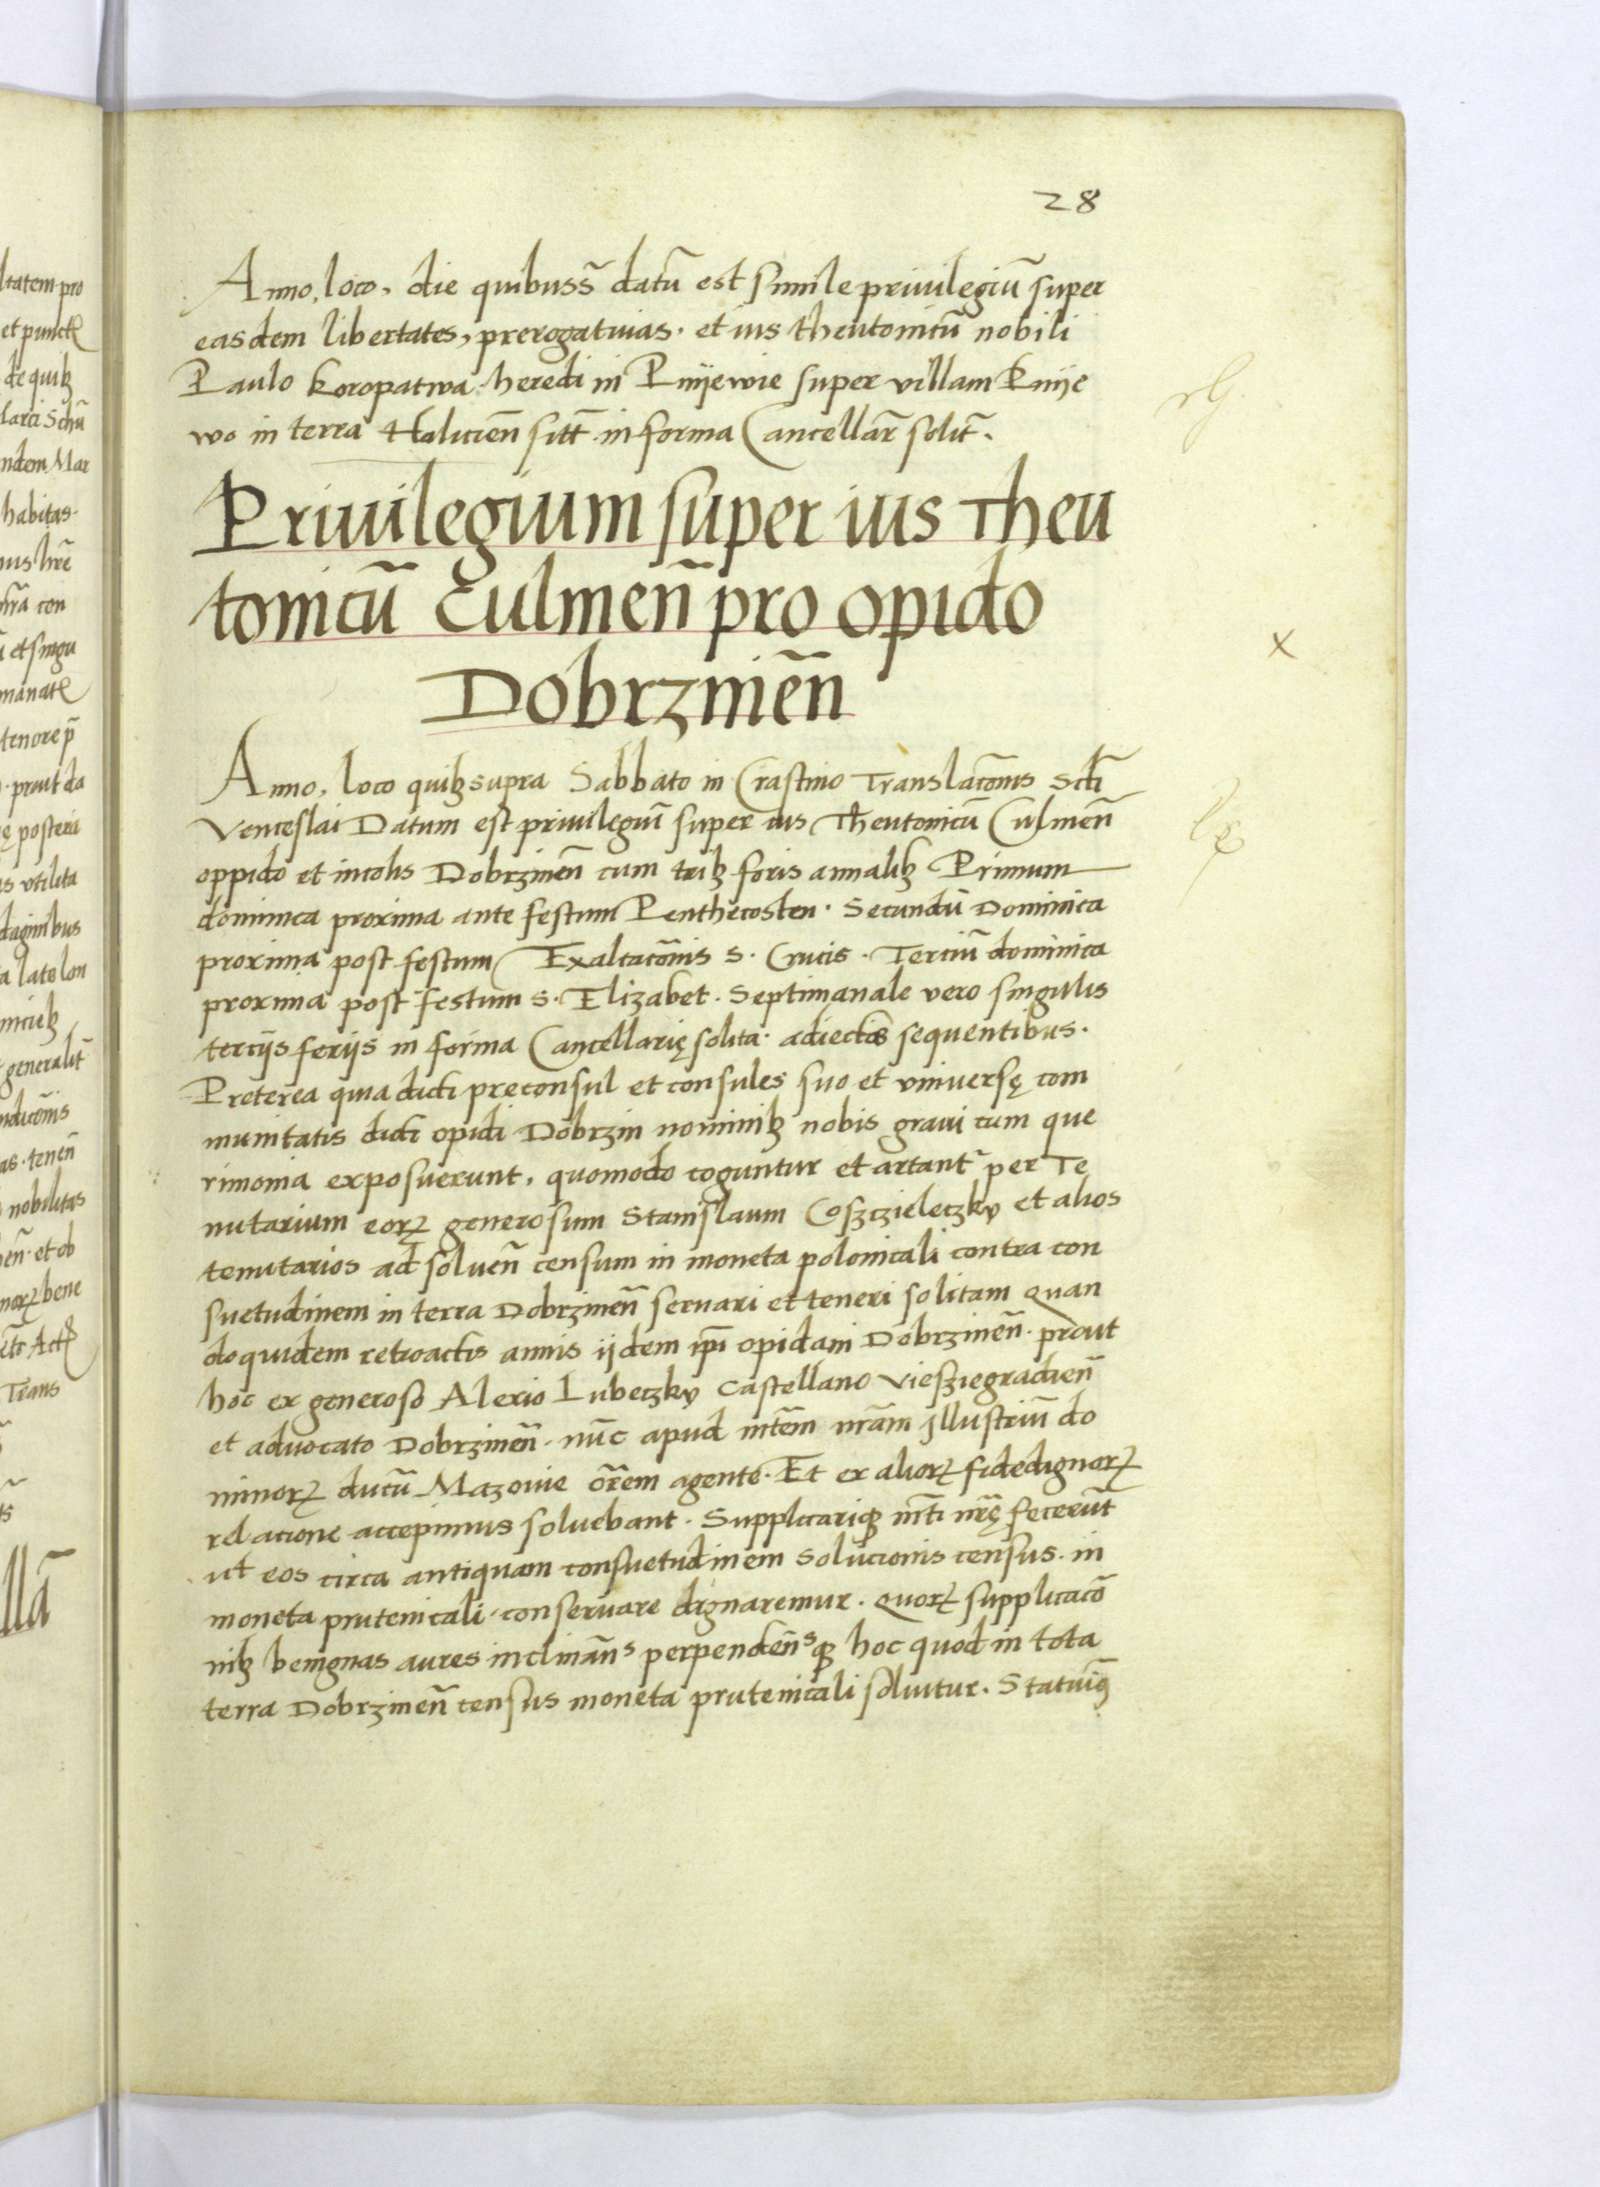 28
Anno, loco, die quibuss̃ datũ est simile priuilegiũ super
easdem libertates, prerogatiuas. et ius theutonicũ nobili
Paulo Koropatwa heredi in Pnijewie super villam Pnije
wo in terra Halicieñ sitt̃ in forma Cancellar̃ solit̃.
Priuilegium super ius Theu
tonicũ Culmeñ pro opido
Dobrzineñ
Anno, loco quibꝫ supra Sabbato in Crastino Translacõnis Scti̅
Venceslai Datum est priuilegiũ super ius Theutonicũ Culmeñ
oppido et incolis Dobrzineñ cum tribꝫ foris annalibꝫ Primum
dominica proxima ante festum Penthecosten. Secundũ Dominica
proxima post festum Exaltacõnis S. Crucis. Terciũ dominica
proxima post festum S. Elizabet. Septimanale vero singulis
tercijs ferijs in forma Cancellarię solita. adiectis sequentibus.
Preterea quia dicti preconsul et consules suo et vniversę com
munitatis dicti opidi Dobrzin nominibꝫ nobis graui cum que
rimonia exposuerunt, quomodo coguntur et artant᷑ per Te
nutarium eorꝝ generosum Stanislaum Cosczieleczky et alios
tenutarios ad solueñ censum in moneta polonicali contra con
suetudinem in terra Dobrzineñ seruari et teneri solitam Quan
doquidem retroactis annis ijdem ip̃i opidani Dobrzineñ. prout
hoc ex generoso Alexio Lubeczky Castellano Vieszegradieñ
et aduocato Dobrzineñ. nũc apud mtẽm nrãm jllustriũ do
minorꝝ ducũ Mazouie orẽm agente. Et ex aliorꝝ fidedignorꝝ
relacione accepimus soluebant. Supplicariqꝫ mti̅ nrę̃ fecerũt
ut eos circa antiquam consuetudinem solucionis census. in
moneta prutenicali. conseruare dignaremur. Quorꝝ supplicacõ
nibꝫ benignas aures inclinãnˢ perpendẽnˢqꝫ hoc quod in tota
terra Dobrzineñ census moneta prutenicali soluitur. Statuimꝰ